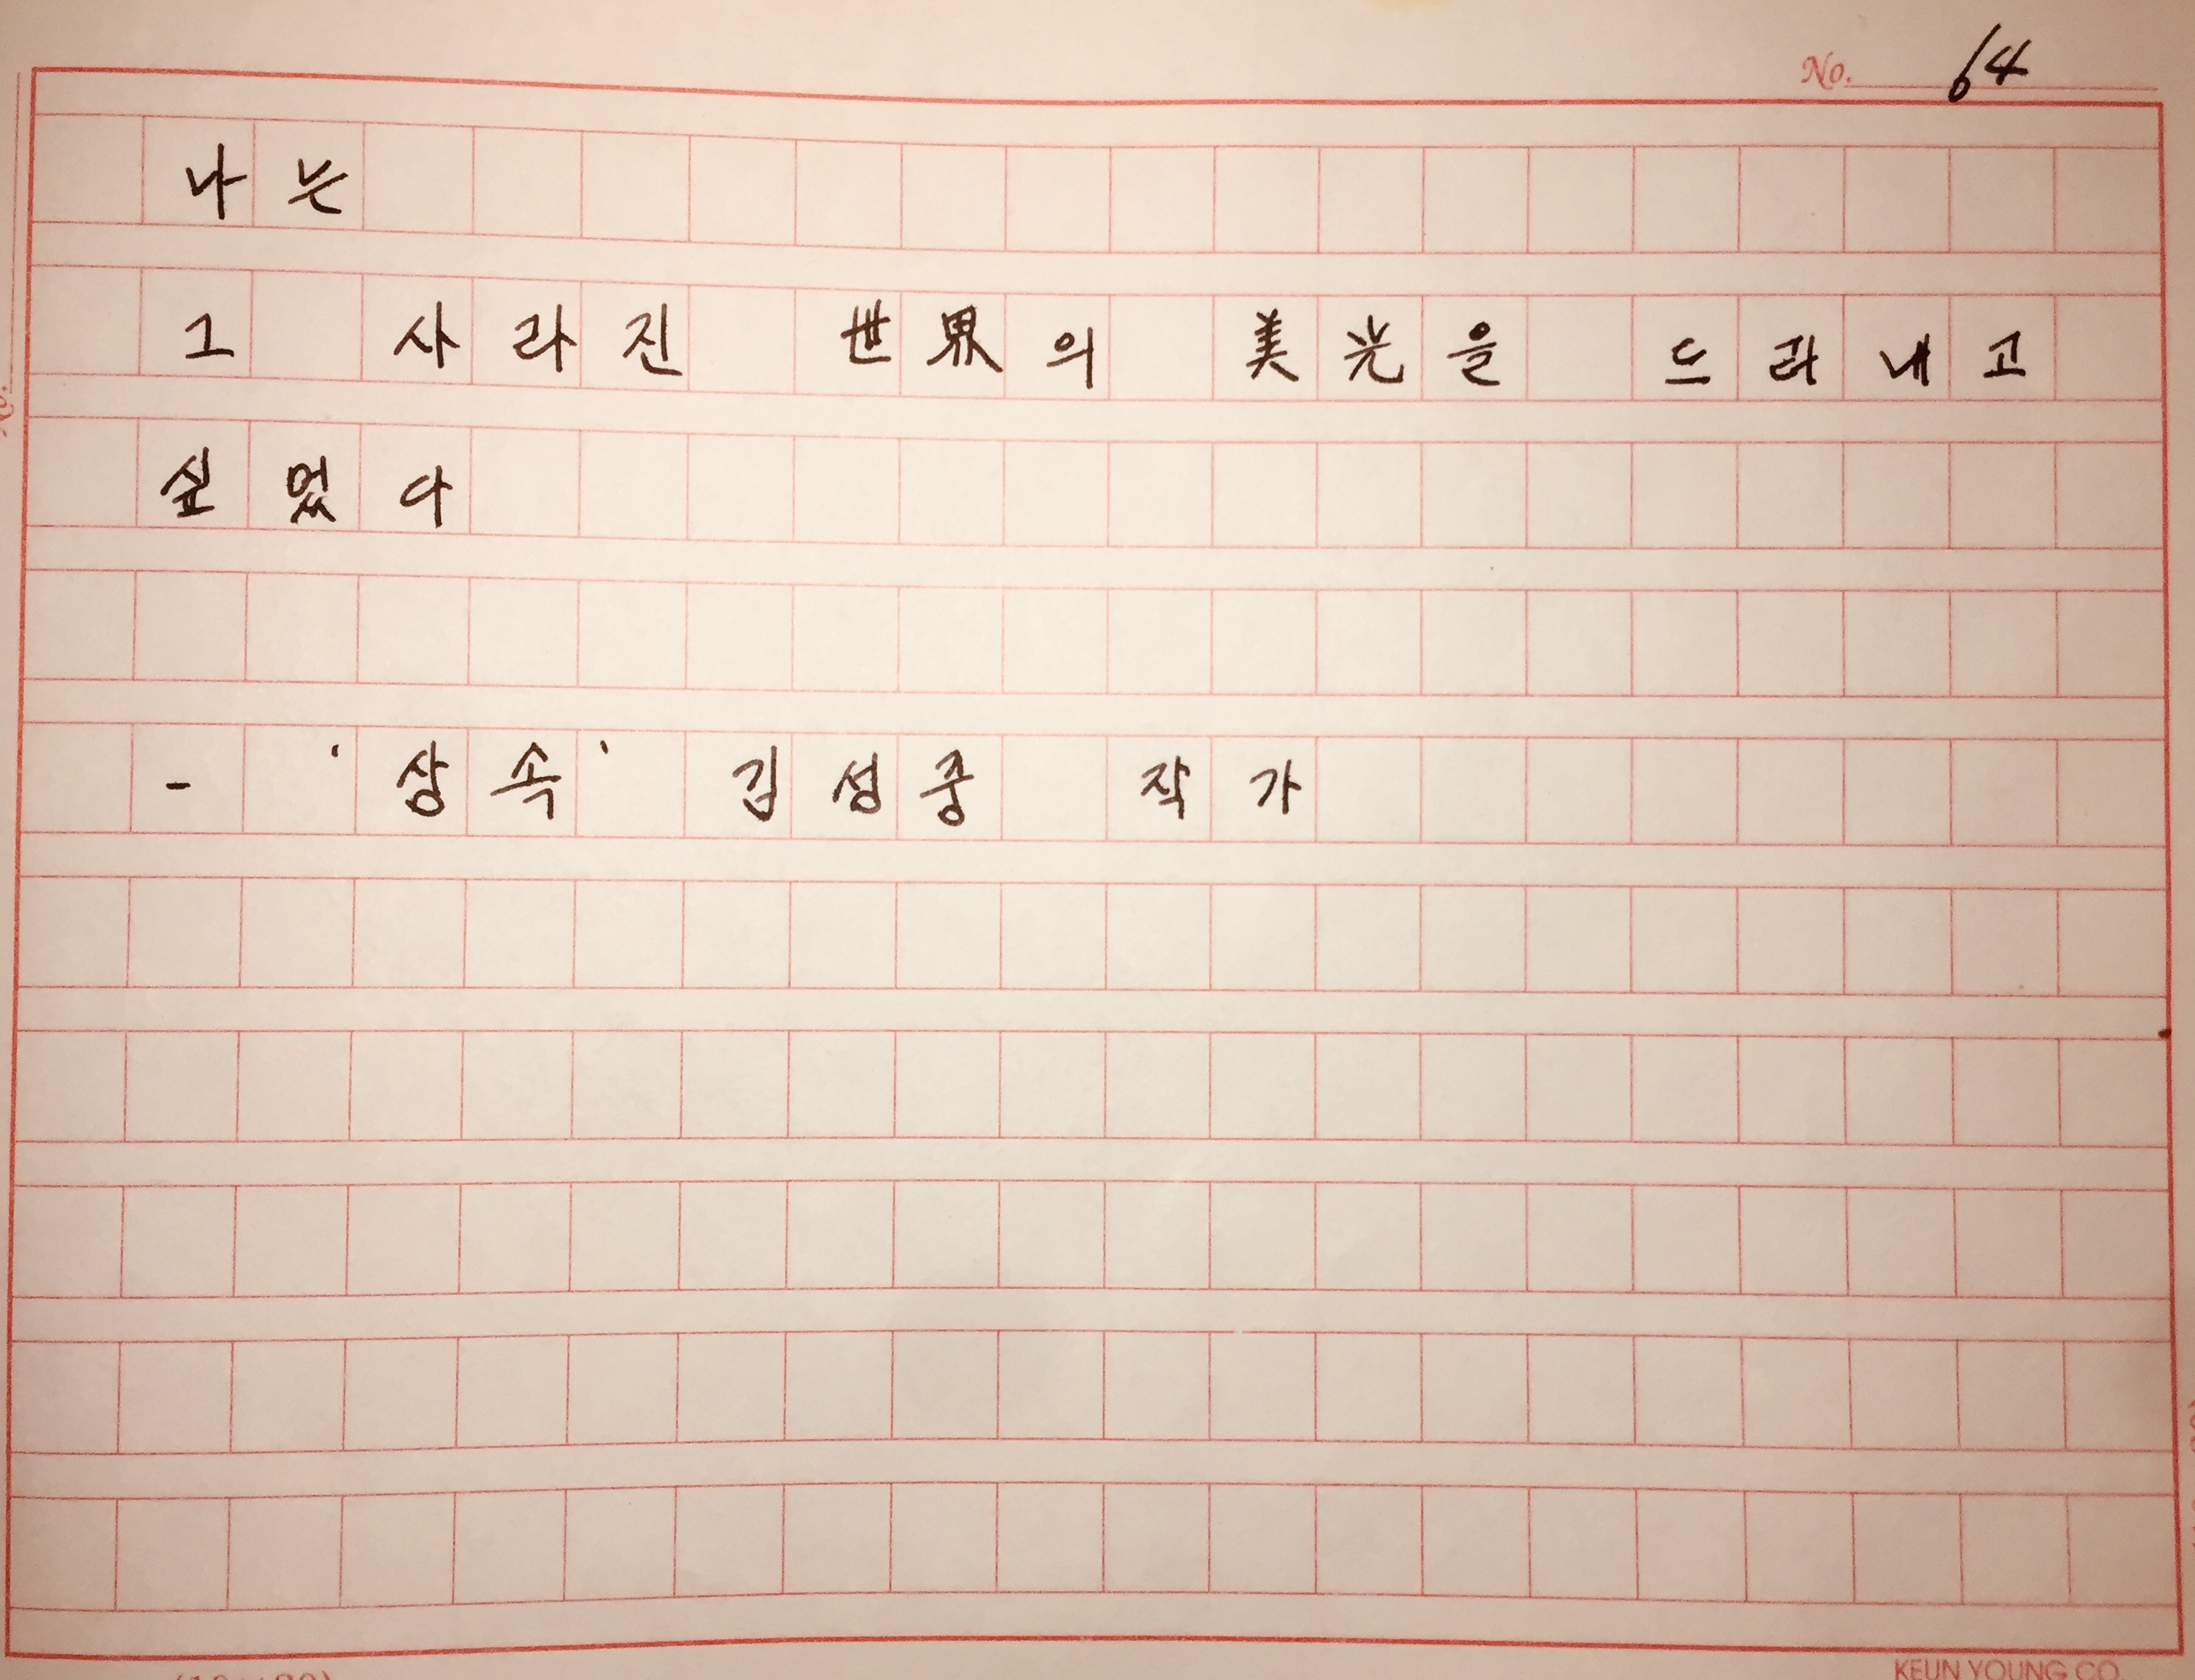 No. 64
나는
그 사라진 世界의 美光을 드러내고
싶었다
- '상속' 김성중 작가
KEUN YOUNG CO.